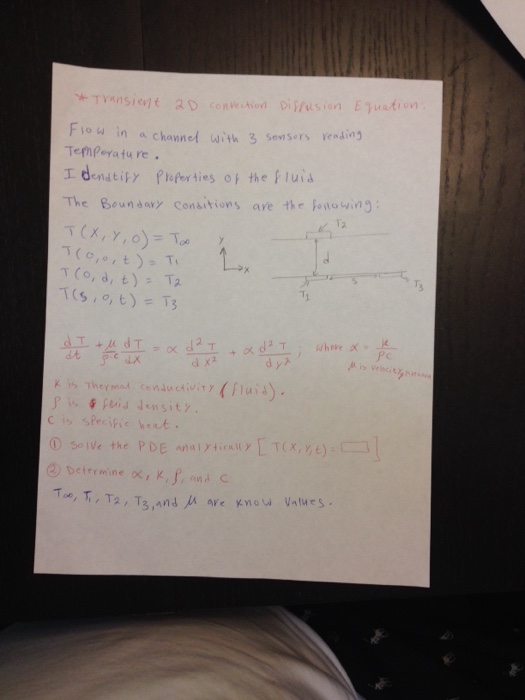 * Transient 2D convection Diffusion Equation:
Flow in a channel with 3 sensors reading
Temperature.
Idendtify Properties of the fluid
The Boundary Conditions are the following:
T(x, y, 0) = T∞
T(0,0,t) = T1
T(0, d, t) = T2
T(s, 0, t) = T3
Y
x
T2
d
s
T1
T3
dT/dt + μ/ρc dT/dx = α d²T/dx² + α d²T/dy² ; where α = k/ρc
μ is velocity,
K is Thermal conductivity (fluid).
ρ is fluid density.
C is specific heat.
① Solve the PDE analytically [T(x,y,t)= ▭]
② Determine α, K, ρ, and C
T∞, T1, T2, T3, and μ are know values.